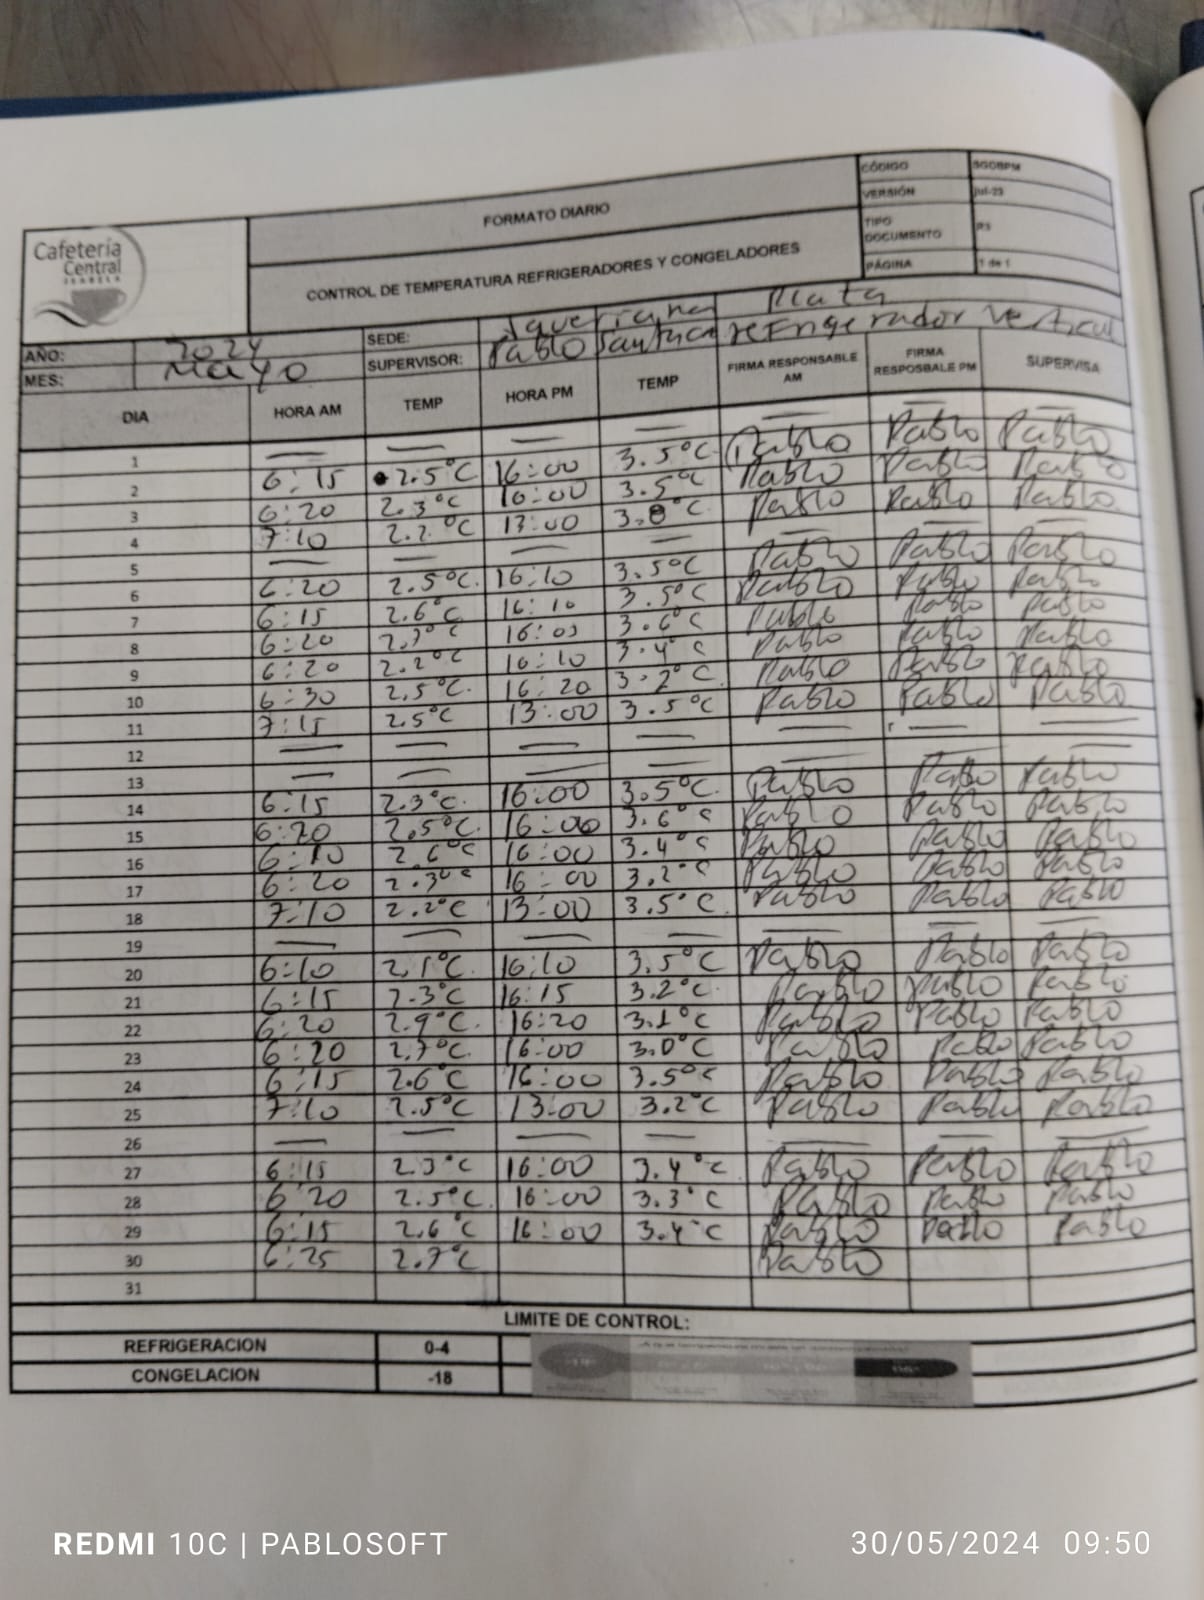 Cafetería
Central
ISABELA
FORMATO DIARIO
CONTROL DE TEMPERATURA REFRIGERADORES Y CONGELADORES
CÓDIGO SGCBPM
VERSIÓN jul-23
TIPO DOCUMENTO R3
PÁGINA 1 de 1
AÑO: 2024 SEDE: Javeriana Plata
MES: Mayo SUPERVISOR: Pablo refrigerador vertical
DIA HORA AM TEMP HORA PM TEMP FIRMA RESPONSABLE AM FIRMA RESPOSBALE PM SUPERVISA
1 — — — — — — —
2 6:15 2.5°C 16:00 3.5°C Pablo Pablo Pablo
3 6:20 2.3°C 16:00 3.5°C Pablo Pablo Pablo
4 7:10 2.2°C 13:00 3.8°C Pablo Pablo Pablo
5 — — — — — —
6 6:20 2.5°C. 16:10 3.5°C Pablo Pablo Pablo
7 6:15 2.6°C 16:10 3.5°C Pablo Pablo Pablo
8 6:20 16:05 3.6°C Pablo Pablo Pablo
9 6:20 2.2°C 16:10 3.4°C Pablo Pablo Pablo
10 6:30 2.5°C. 16:20 3.2°C. Pablo Pablo Pablo
11 7:15 2.5°C 13:00 3.5°C Pablo Pablo Pablo
12 — — — — — — —
13 — — — — — —
14 6:15 2.3°C. 16:00 3.5°C. Pablo Pablo Pablo
15 6:20 2.5°C. 16:00 3.6°C Pablo Pablo Pablo
16 6:10 2.6°C 16:00 3.4°C Pablo Pablo Pablo
17 6:20 2.3°C 16:00 3.2°C Pablo Pablo Pablo
18 7:10 2.2°C 13:00 3.5°C. Pablo Pablo Pablo
19 — — — — — —
20 6:10 2.1°C. 16:10 3.5°C Pablo Pablo Pablo
21 6:15 2.3°C 16:15 3.2°C. Pablo Pablo Pablo
22 6:20 2.9°C. 16:20 3.1°C Pablo Pablo Pablo
23 6:20 2.7°C. 16:00 3.0°C Pablo Pablo Pablo
24 6:15 2.6°C 16:00 3.5°C Pablo Pablo Pablo
25 7:10 2.5°C 13:00 3.2°C Pablo Pablo Pablo
26 — — — — — — —
27 6:15 2.3°C 16:00 3.4°C. Pablo Pablo Pablo
28 6:20 2.5°C. 16:00 3.3°C Pablo Pablo Pablo
29 6:15 2.6°C 16:00 3.4°C Pablo Pablo Pablo
30 6:25 2.7°C Pablo
31
LIMITE DE CONTROL:
REFRIGERACION 0-4
CONGELACION -18
REDMI 10C | PABLOSOFT 30/05/2024 09:50